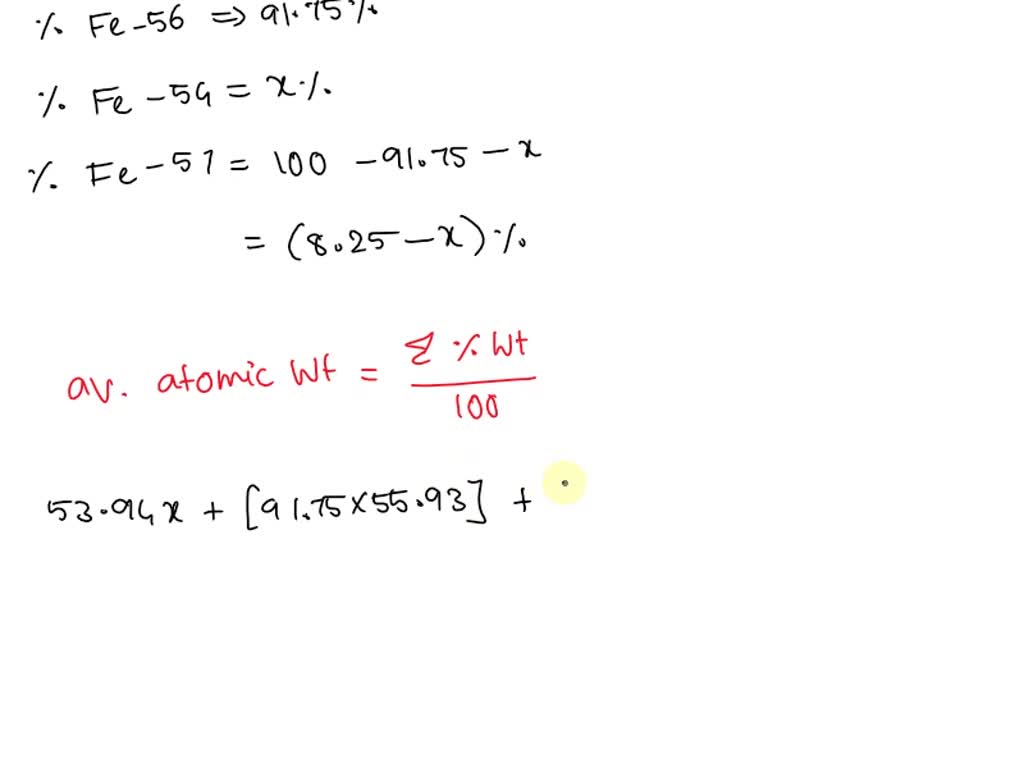 % Fe-56 ⇒ 91.75%
% Fe-54 = x%
% Fe-57 = 100 - 91.75 - x
= (8.25 - x)%
av. atomic Wt = Σ % Wt
100
53.94x + [91.75×55.93] +